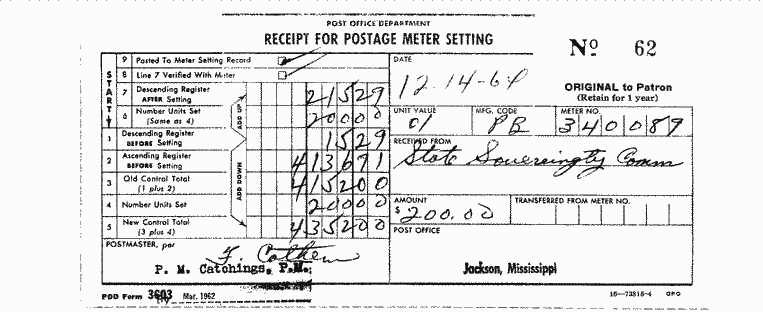 POST OFFICE DEPARTMENT
RECEIPT FOR POSTAGE METER SETTING
No 62
ORIGINAL to Patron
(Retain for 1 year)
START
9 Posted To Meter Setting Record
8 Line 7 Verified With Meter
7 Descending Register AFTER Setting 21529
6 Number Units Set (Same as 4) 20000
ADD UP
1 Descending Register BEFORE Setting 1529
2 Ascending Register BEFORE Setting 413671
3 Old Control Total (1 plus 2) 415200
4 Number Units Set 20000
5 New Control Total (3 plus 4) 435200
ADD DOWN
DATE
12-14-64
UNIT VALUE
c/
MFG. CODE
PB
METER NO.
340089
RECEIVED FROM
State Sovereingty Comm
AMOUNT
$ 200.00
TRANSFERRED FROM METER NO.
POST OFFICE
Jackson, Mississippi
POSTMASTER, per
P. M. Catchings, P.M.
POD Form 3603 Mar. 1962
16—73815-4 GPO